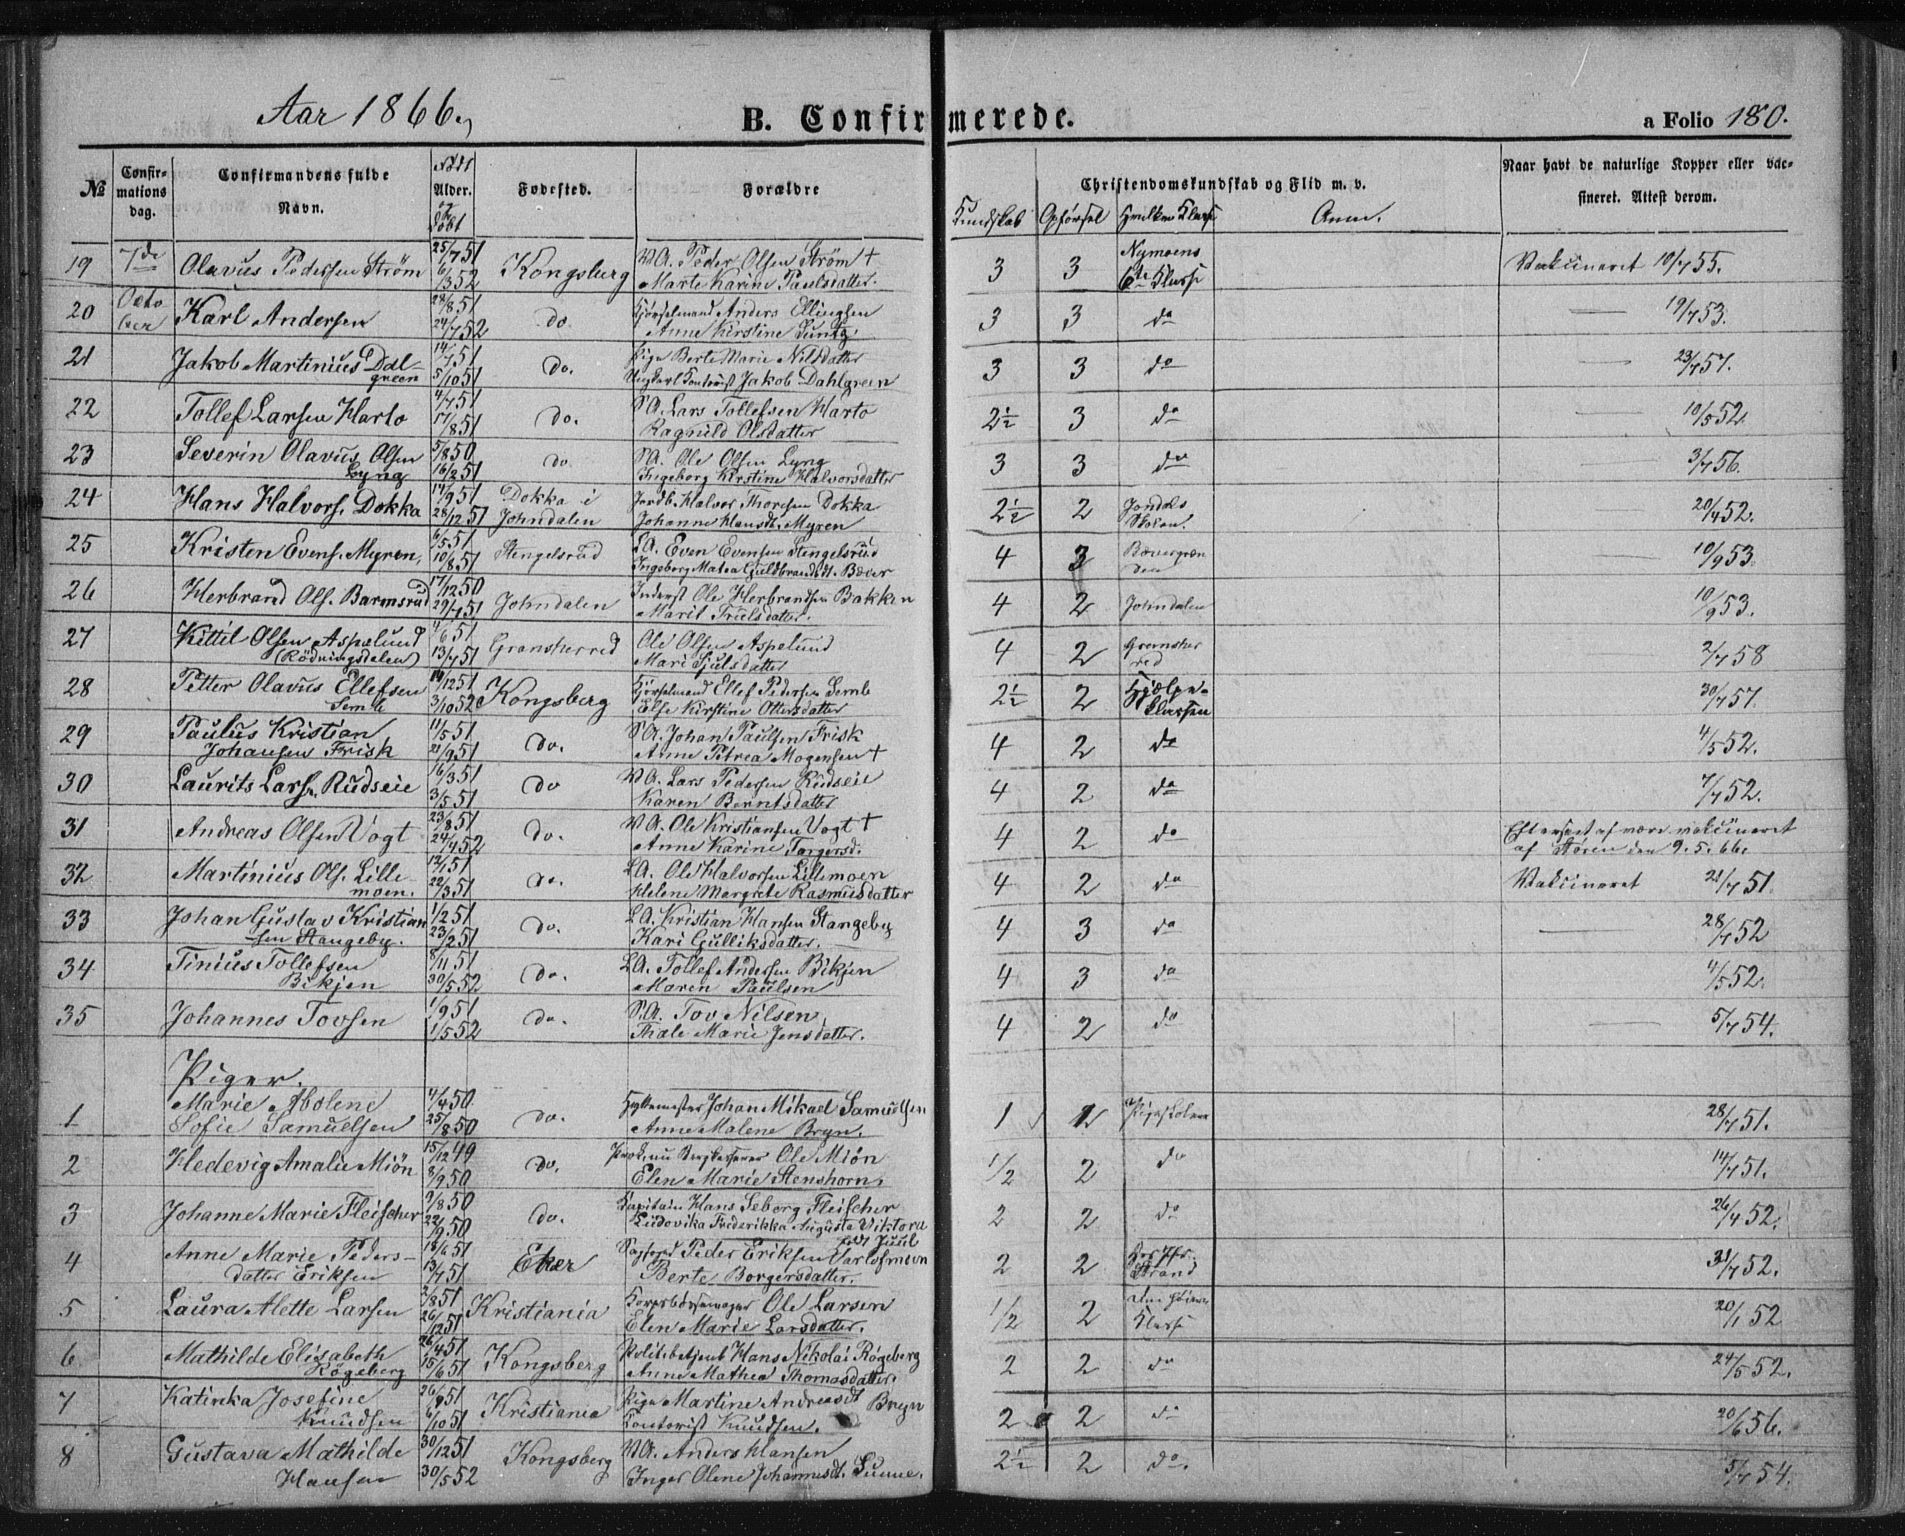 Aar 1866.
B. Confirmerede.
a Folio 180.
№ Confirmations dag. Confirmandens fulde Navn. Født Alder. og døbt Fødested. Forældre Christendomskundskab og Flid m. v. Naar havt de naturlige Kopper eller vaccineret. Attest derom.
Kundskab Opførsel Hvilken Klasse Anm.
19 7de Olavus Pedersen Strøm 25/7 51 6/3 52 Kongsberg V.A. Peder Olsen Strøm + Marte Karine Paulsdatter. 3 3 Nymoens 6te Klasse Vakcineret 10/7 55.
20 October Karl Andersen 28/8 51 24/7 52 do Kjørselmand Anders Ellingsen Anne Kirstine Suntz. 3 3 do — 19/7 53.
21 Jakob Martinius Dalgreen 14/7 51 5/10 51 do. Pige Berte Marie Nilsdatter Ungkarl Kontorist Jakob Dahlgreen 3 3 do — 23/7 57.
22 Tollef Larsen Harto 4/7 51 17/8 51 do. S.A. Lars Tollefsen Harto Ragnild Olsdatter 2½ 3 do — 10/5 52.
23 Severin Olavus Olsen Lyng 5/8 50 16/2 51 do S.A. Ole Olsen Lyng Ingeborg Kirstine Halvorsdatter 3 3 do — 3/7 56.
24 Hans Halvors. Dokka 14/9 51 28/12 51 Dokka i Johndalen Jordb. Halvor Thoresen Dokka Johanne Hansdt. Myren 2½ 2 Jondals Skolen. 20/4 52.
25 Kristen Evens. Myren, 6/5 51 10/8 51 Stengelsrud L.A. Even Evensen Stengelsrud Ingeborg Matea Guldbrandsdt. Bæver 4 3 Bævergrenden 10/9 53.
26 Herbrand Ols. Barmsrud 17/12 50 29/7 51 Johndalen Inderst Ole Herbrandsen Bakken Marit Trulsdatter. 4 2 Johndalen 10/9 53.
27 Kittil Olsen Aspelund (Rødningsdalen) 4/6 51 13/7 51 Gransherred Ole Olsen Aspelund Mari Sjulsdatter 4 2 Gransherred 2/7 58
28 Petter Olavus Ellefsen Semb 14/12 51 3/10 52 Kongsberg Kjørselmand Ellef Pedersen Semb Else Kirstine Ottersdatter 2½ 2 Hjælpeklassen 30/7 57.
29 Paulus Kristian Johansen Frisk 11/5 51 21/9 51 do. S.A. Johan Paulsen Frisk Anne Petrea Mogensen + 4 2 do 4/5 52.
30 Laurits Lars. Rudseie 16/3 51 3/5 51 do V.A. Lars Pedersen Rudseie Karen Berntsdatter 4 2 do 7/7 52.
31 Andreas Olsen Vogt 23/8 51 24/4 52 do. V.A. Ole Kristiansen Vogt + Anne Karine Torgersd. 4 2 do Eft. af være vakcineret af den 9. 5. 66.
32 Martinius Ols. Lillemoen. 12/1 51 22/3 51 do. L.A. Ole Halvorsen Lillemoen Helene Margrete Rasmusdatter 4 2 do Vakcineret 21/7 51.
33 Johan Gustav Kristiansen Stangeby. 1/2 51 23/2 51 do. L.A. Kristian Hansen Stangeby Kari Gulliksdatter. 4 3 do — 28/7 52
34 Tinius Tollefsen Bikjen 8/11 51 30/5 52 do. L.A. Tollef Andersen Bikjen Maren Paulsen 4 3 do 4/5 52.
35 Johannes Tovsen 1/9 51 1/5 52 do. S.A. Tov Nilsen Thale Marie Jensdatter. 4 2 do — 5/7 54.
Piger.
1 Marie Abolene Sofie Samuelsen 4/4 50 25/8 50 do. Hyttemester Johan Mikael Samuelsen Anne Malene Bryn. 1 1 Pigeskolen 28/7 51.
2 Hedevig Amalie Miøn 15/12 49 8/9 50 do. Ole Miøn Elen Marie Stenshorn. 1/2 2 do 14/7 51.
3 Johanne Marie Fleischer 9/8 50 22/9 50 do. Kapitain Hans Seborg Fleischer Ludovika Frederikka Augusta Viktora født Juul 2 2 do 26/4 52.
4 Anne Marie Pedersdatter Eriksen 18/6 51 13/7 51 Eker Peder Eriksen Berte Borgersdatter. 2 2 31/7 52.
5 Laura Alette Larsen 2/8 51 26/12 51 Kristiania Ole Larsen Elen Marie Larsdatter. 1/2 2 Den høiere Klasse 20/1 52
6 Mathilde Elisabeth Røgeberg 26/4 51 15/6 51 Kongsberg Politibetjent Hans Nikolai Røgeberg Anne Mathea Thomasdatter. 2 2 do 24/5 52.
7 Katinka Josefine Knudsen 26/9 51 6/10 51 Kristiania Pige Martine Andreasdt. Bryn Kontorist Knudsen. 2 2 do 20/6 56.
8 Gustava Mathilde Hansen 30/12 51 30/5 52 Kongsberg V.A. Anders Hansen Inger Olene Johannesdt. Sunne. 2½ 2 do. 5/7 54.